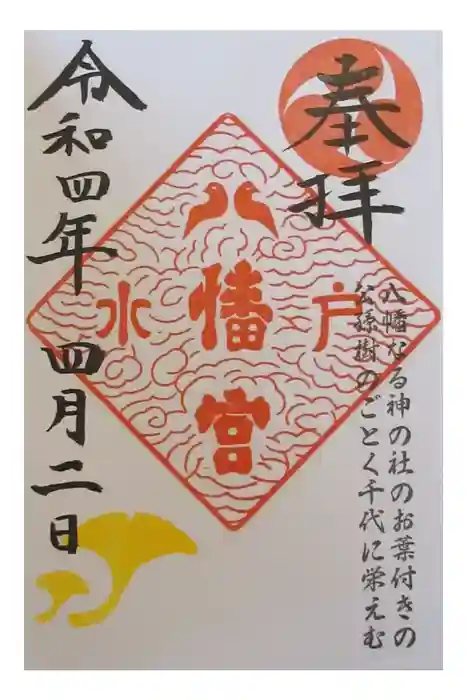 奉拝
八幡なる神の社のお葉付きの
公孫樹のごとく千代に栄えむ
水戸
八幡宮
令和四年 四月二日